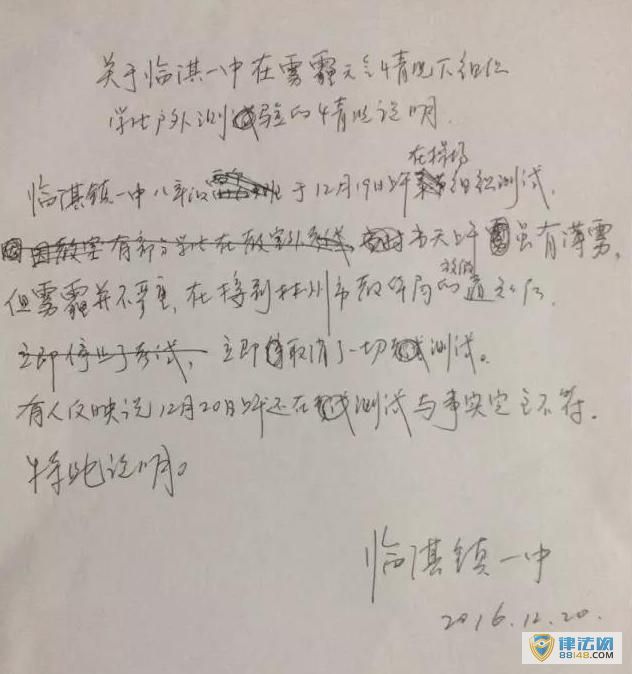 关于临淇一中在雾霾天气情况下组织
学生户外测验的情况说明
在操场
临淇镇一中八年级于12月19日上午组织测试,
因教室有部分学生在教室外考试, 当天上午虽有薄雾,
放假
但雾霾并不严重,在接到林州市教体局的通知后,
立即停止了考试,立即取消了一切测试。
有人反映说12月20日上午还在测试与事实完全不符。
特此说明。
临淇镇一中
2016.12.20.
律法网
88148.COM